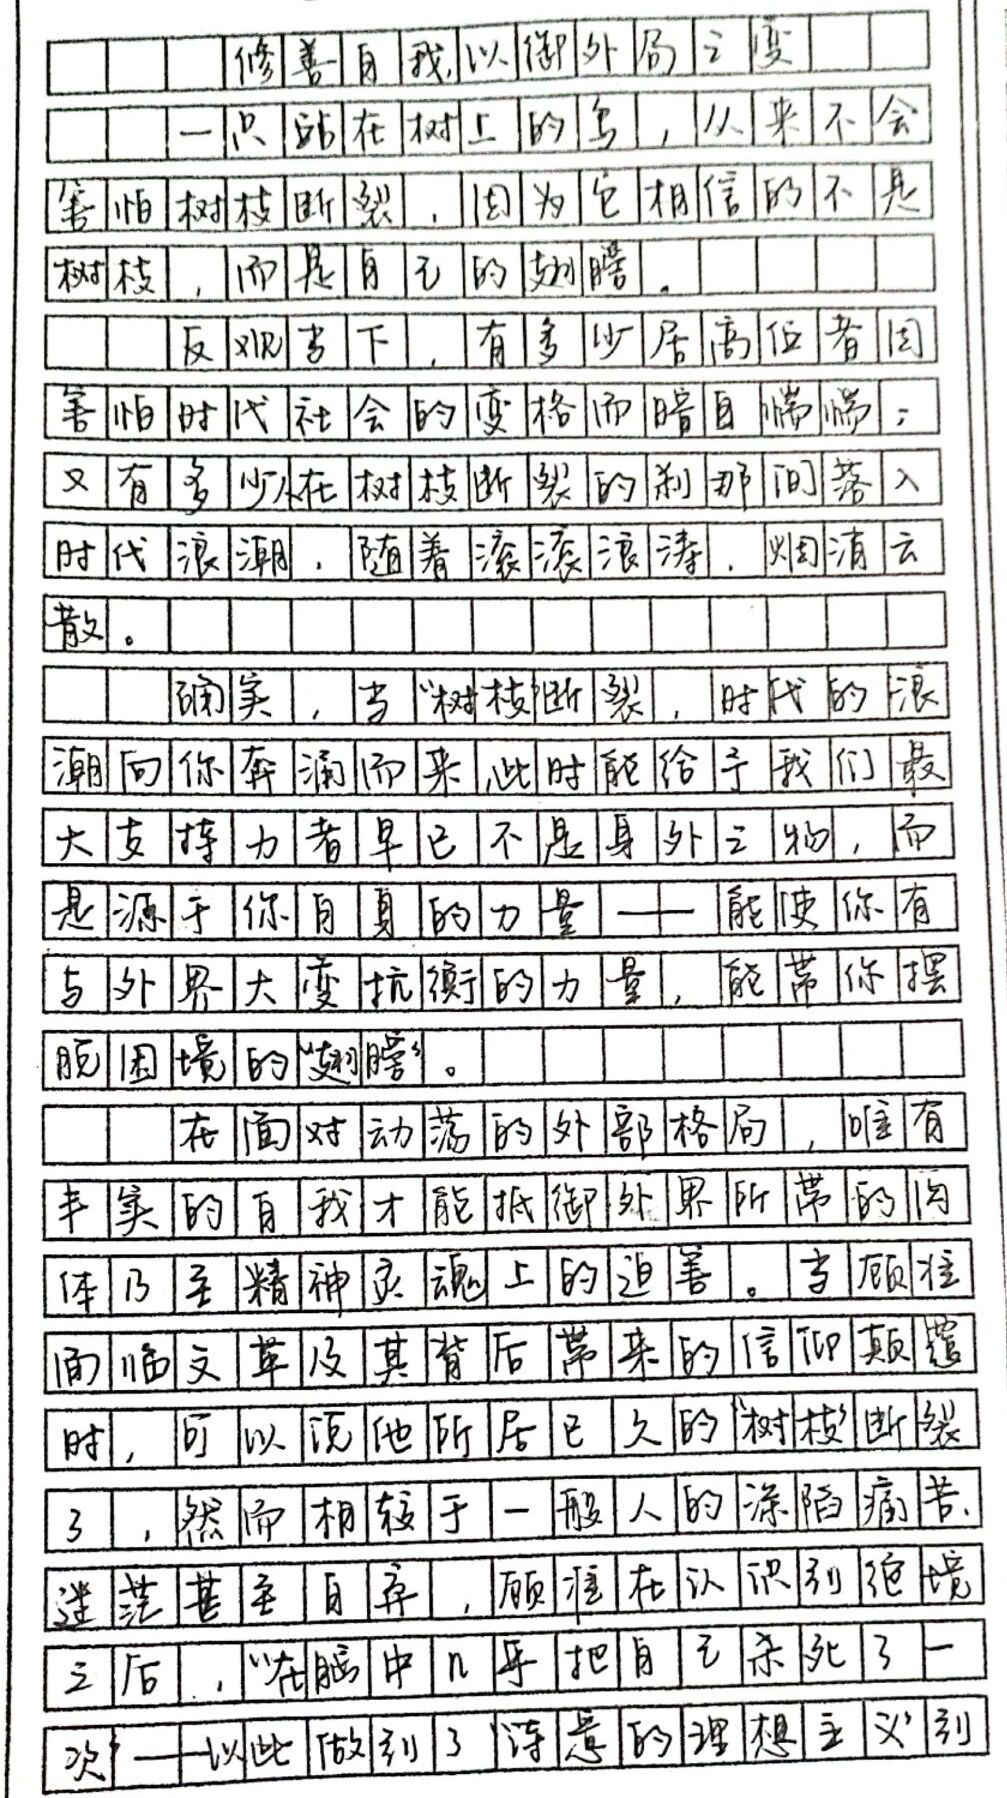 修善自我,以御外局之变
一只站在树上的鸟,从来不会
害怕树枝断裂,因为它相信的不是
树枝,而是自己的翅膀。
反观当下,有多少居高位者因
害怕时代社会的变格而暗自惴惴;
又有多少人在树枝断裂的刹那间落入
时代浪潮,随着滚滚浪涛,烟消云
散。
确实,当“树枝”断裂,时代的浪
潮向你奔涌而来,此时能给予我们最
大支持力者早已不是身外之物,而
是源于你自身的力量——能使你有
与外界大变抗衡的力量,能带你摆
脱困境的“翅膀”。
在面对动荡的外部格局,唯有
丰实的自我才能抵御外界所带的肉
体乃至精神灵魂上的迫害。当顾准
面临文革及其背后带来的信仰颠覆
时,可以说他所居已久的“树枝”断裂
了,然而相较于一般人的深陷痛苦、
迷茫甚至自弃,顾准在认识到绝境
之后,“在脑中几乎把自己杀死了一
次”——以此做到了“诗意的理想主义”到